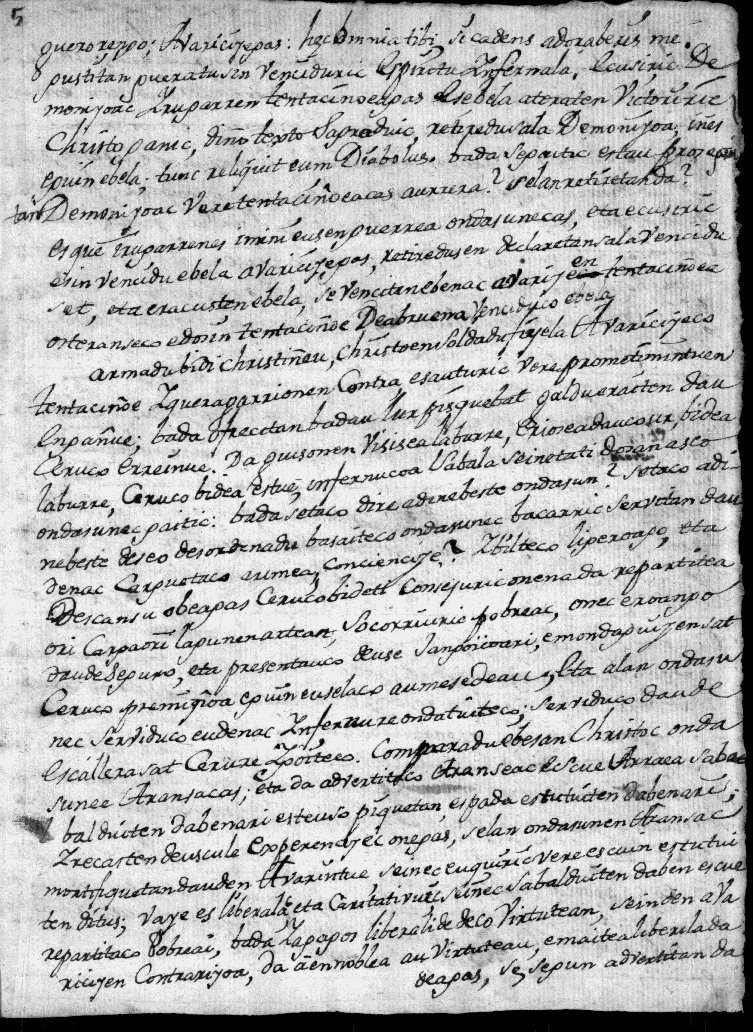 5
quero reppo; Avaricijepas: hec omnia tibi, si cadens adoraberis me.
pustitan pueratusin venciduric Espiritu Infernala; Ecusiric De
monijoac Iruparren tentacinoeapas Ese bela ateraten Victoriric
Christo panic, dino texto Sagraduic, retiredusala Demonijoa, ines
epuin ebela; tunc reliquit eum Diabolus. bada sepaitic estau proseg
tan Demonijoac vere tentacinoeacas aurrera? selan retiretanda?
esque iruparrenes inimeusen puerrea ondasunecas, eta ecusiric
esin vencidu ebela avaricijepas, retiredusen declaretan sala vencidu
set, eta eracusten ebela, se vencitenebenac avarijen tentacinoea
orteranseco edosin tentacinoe Deabruena venciduco ebela
armadu bidi Christineu, Christoen soldadu fijela Avaricijeco
tentacinoe Zqueraparrionen Contra esauturic vere prometimintuen
Enpanue; bada ofrecitan badau llur pisquebat galdueraiten dau
Ceruco Erreinue. Da guisonen visisea laburre, Erioseadaucosur, bidea
laburre, Ceruco bidea estue, infernucoa Sabala seinetati doian asco
ondasunec paitic: bada setaco dire adinebeste ondasun? setaco adi
nebeste deseo desordenadu basaiteco ondasunec bacarric servitan dau
denac Corpuetaco aumea, Conciencije? Ibilteco liperoapo, eta
Descansu obeapas Ceruco bideti Consejuric onena da repartitea
ori Carpaori lapunen artean, Socorriuric pobreac, onec eroanpo
daude Sepuro, eta presentauco deuse Janpoicoari, emondapuijensat
Ceruco premijoa epuin euselaco aumesedeau; Eta alan ondasu
nec serviduco eudenac Infernure ondatuiteco; serviduco daude
Escallerasat Cerure Igoiteco. Comparaduebesan Christoc onda
sunec Aransacas; eta da advertitaco Aranseac Escue Arraea sabal
balduiten dabenari estenso piquetan, espada estutuiten dabenari;
Irecasten deuscule Experencijec onepas, selan ondasunen Aransac
mortifiquetandauden Avarintue seinec euquiric vere escuen estutui
ten ditus; vaye es liberala eta Caritativuri seinec sabalduiten daben escue
repartitaco Pobreai, bada Iapapos liberalidedeco Virtutean, seinden ava
ricijen Contrarijoa, da aennoblea au Virtuteau, emaitea liberula da
deapas, se segun advertitan da